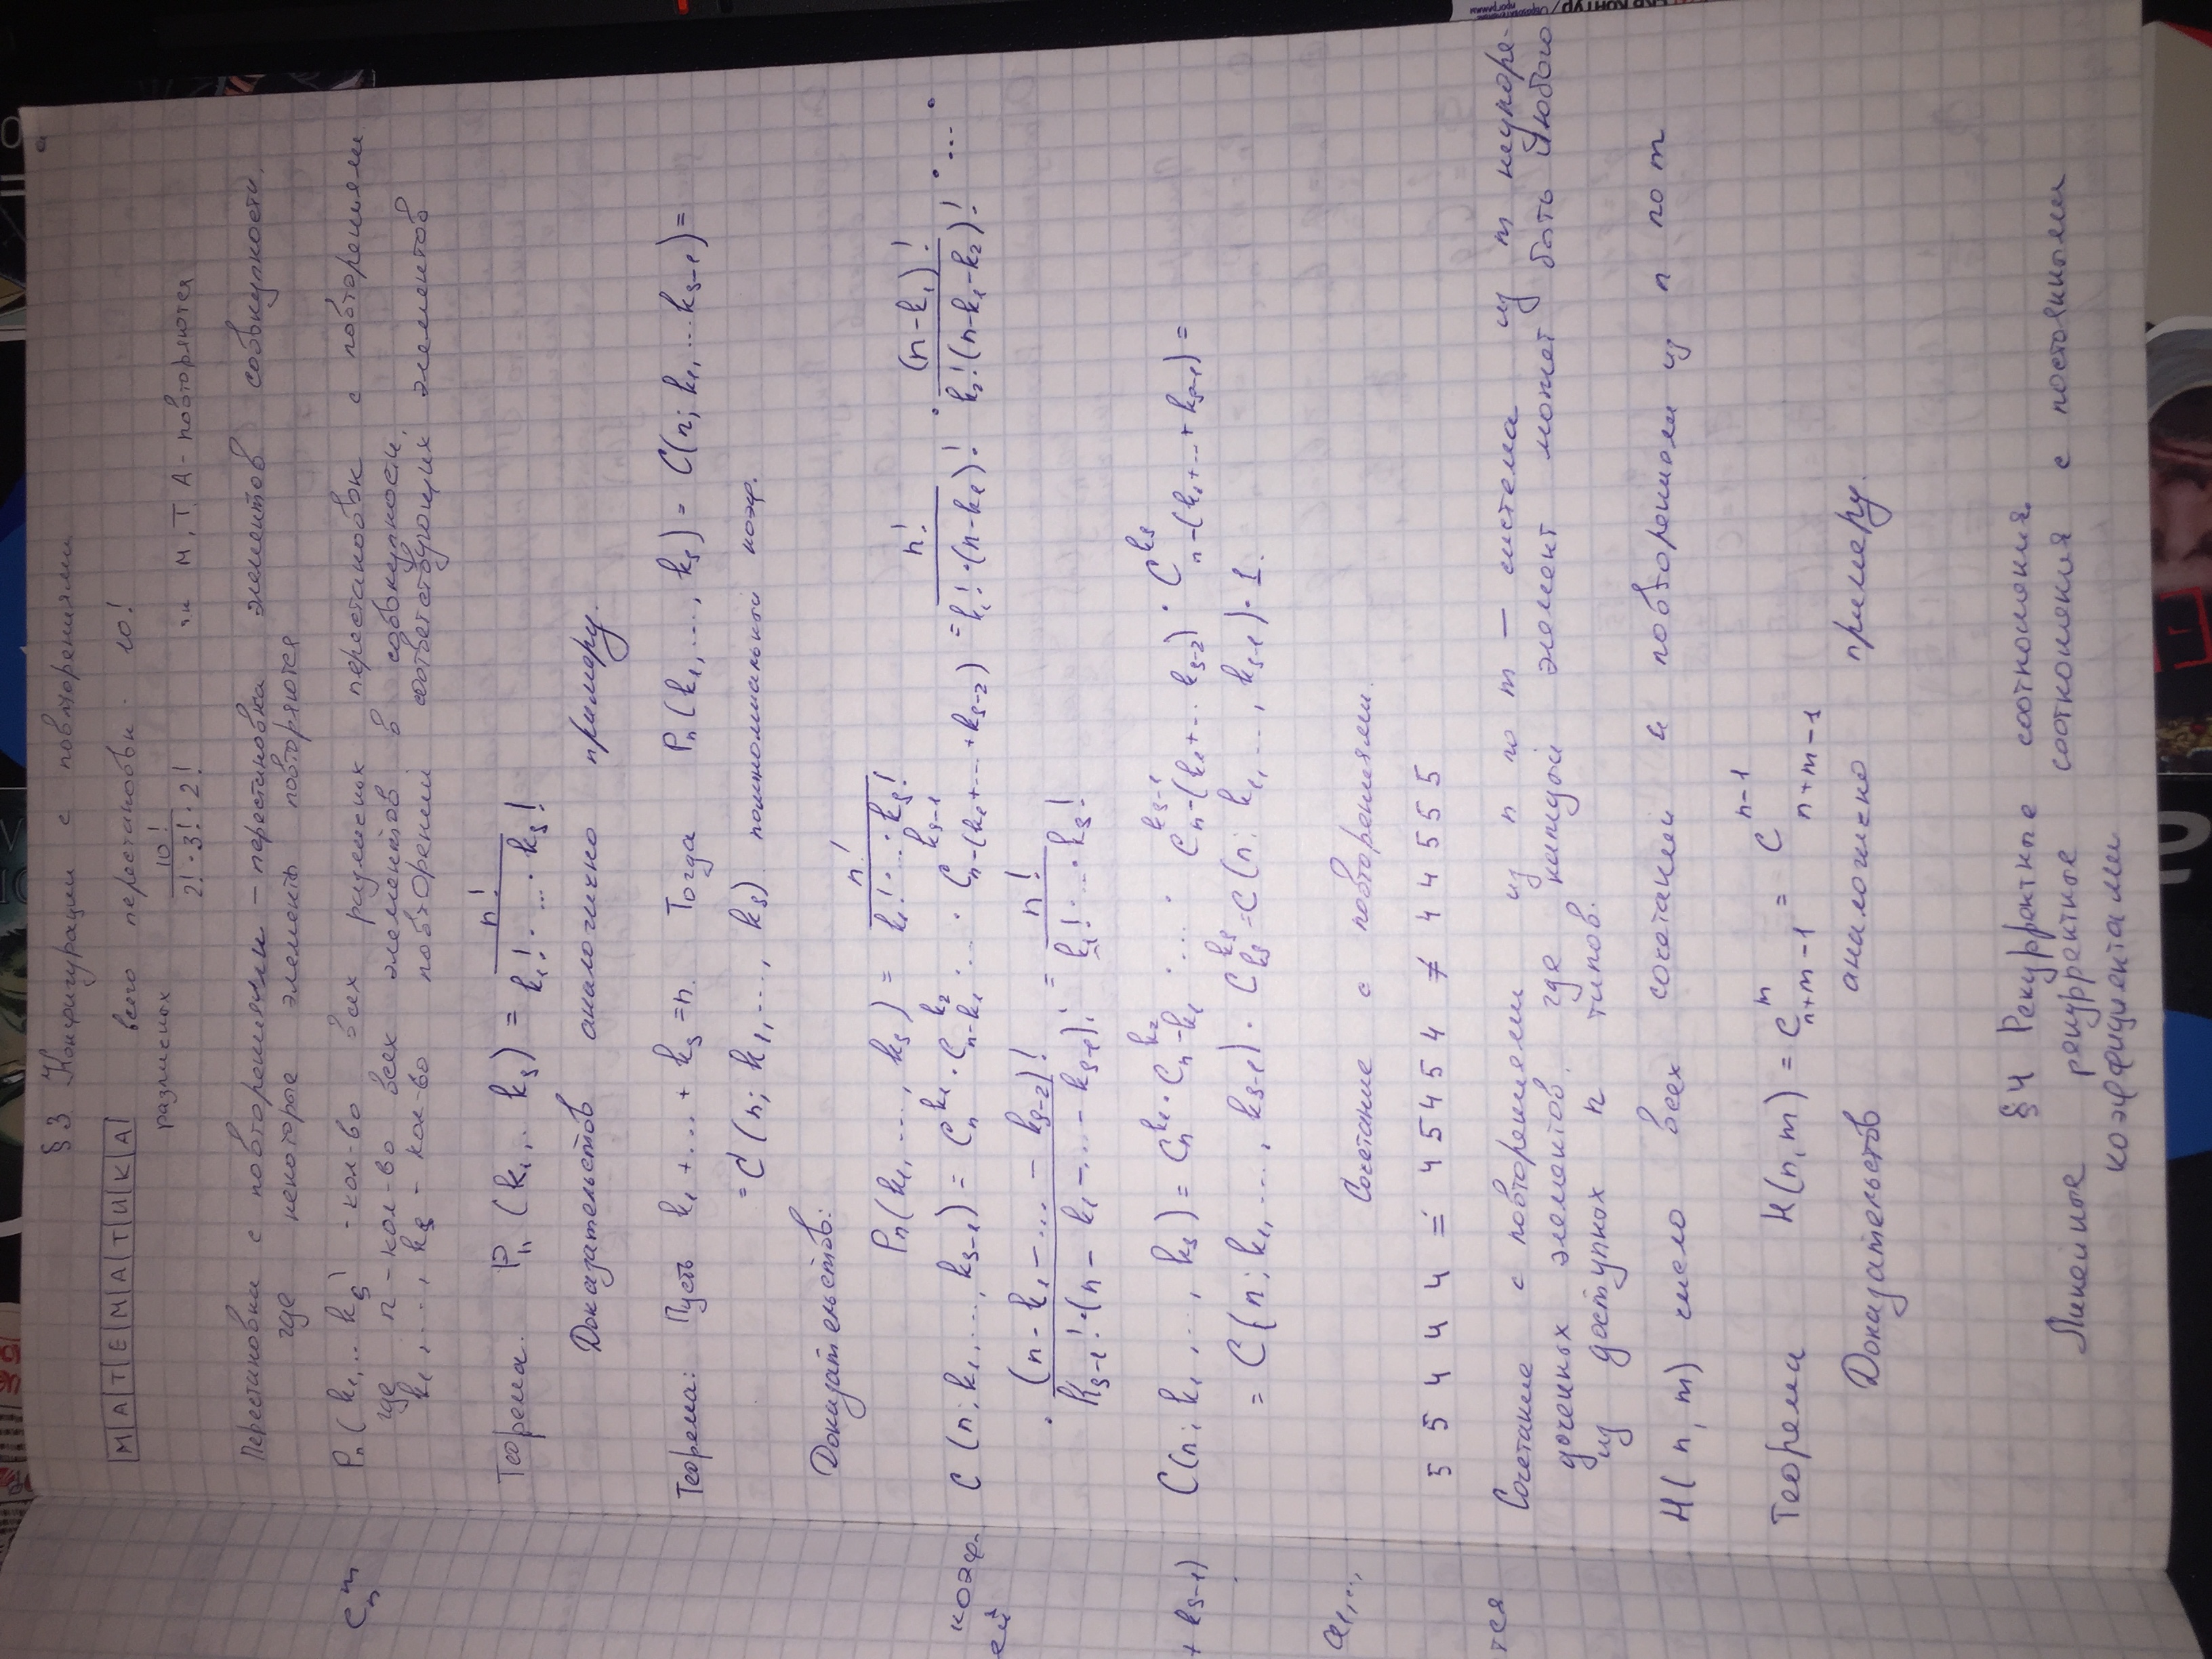 §3. Конфигурации с повторениями
МАТЕМАТИКА всего перестановок 10!
различных 10! / 2!·3!·2! т.к М, Т, А - повторяются
Перестановки с повторениями — перестановка элементов совокупности,
где некоторые элементы повторяются
Pn(k1,.. ks) - кол-во всех различных перестановок с повторениями
где n - кол-во всех элементов в совокупности,
k1, ..., ks - кол-во повторений соответствующих элементов
Теорема. Pn(k1,.. ks) = n! / k1!·...·ks!
Доказательств аналогично примеру.
Теорема: Пусть k1+...+ks=n. Тогда Pn(k1,...,ks) = C(n; k1,...ks-1)=
=C(n; k1,..., ks). полиномиальный коэф.
Доказательств:
Pn(k1,...,ks) = n! / k1!·...·ks!
C(n; k1,..., ks-1) = C_n^k1 · C_{n-k1}^k2 · ... · C_{n-(k1+...+ks-2)}^{ks-1} = n! / k1!·(n-k1)! · (n-k1)! / k2!(n-k1-k2)! · ... ·
· (n-k1-...-ks-2)! / ks-1!·(n-k1-...-ks-1)! = n! / k1!·...·ks!
C(n; k1,..., ks) = C_n^k1 · C_{n-k1}^k2 · ... · C_{n-(k1+...ks-2)}^{ks-1} · C_{n-(k1+...+ks-1)}^{ks} =
= C(n; k1,..., ks-1) · C_ks^ks = C(n; k1,..., ks-1)·1.
Сочетание с повторениями.
5 5 4 4 4 = 4 5 4 5 4 ≠ 4 4 5 5 5
Сочетание с повторениями из n по m — система из m неупоря-
доченных элементов, где каждый элемент может быть любого
из доступных n типов.
H(n, m) число всех сочетаний с повторениями из n по m
Теорема H(n,m) = C_{n+m-1}^m = C_{n+m-1}^{n-1}
Доказательств аналогично примеру.
§4 Рекурректные соотношения.
Линейные рекурректные соотношения с постоянными
коэффициентами
C_n^m
коэф-
ей
+ks-1)
a1,..,
тся